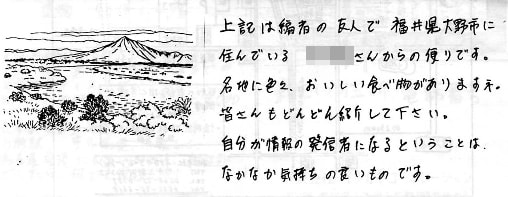 上記は編者の友人で 福井県大野市に
住んでいる さんからの便りです。
各地に色々、おいしい食べ物がありますネ。
皆さんもどんどん紹介して下さい。
自分が情報の発信者になるということは、
なかなか気持ちの良いものです。